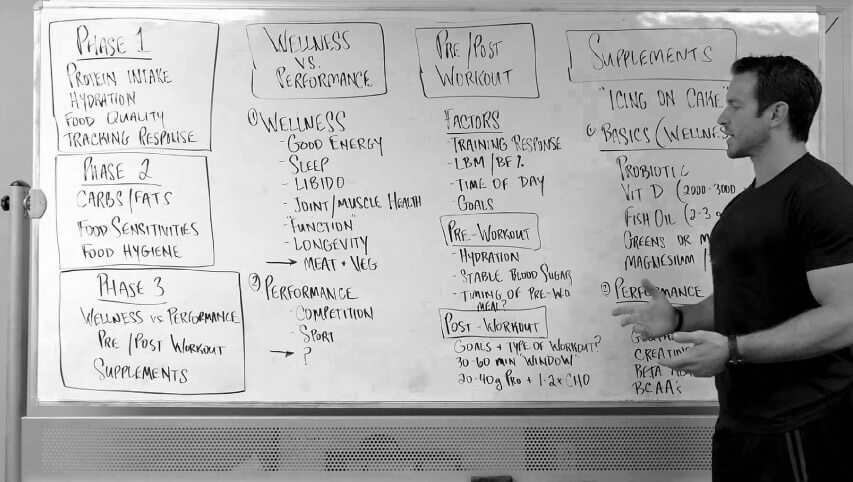 PHASE 1
PROTEIN INTAKE
HYDRATION
FOOD QUALITY
TRACKING RESPONSE
PHASE 2
CARBS/FATS
FOOD SENSITIVITIES
FOOD HYGIENE
PHASE 3
WELLNESS VS PERFORMANCE
PRE/POST WORKOUT
SUPPLEMENTS
WELLNESS
VS.
PERFORMANCE
① WELLNESS
- GOOD ENERGY
- SLEEP
- LIBIDO
- JOINT/MUSCLE HEALTH
- "FUNCTION"
- LONGEVITY
→ MEAT + VEG
② PERFORMANCE
- COMPETITION
- SPORT
→ ?
PRE/POST
WORKOUT
FACTORS
- TRAINING RESPONSE
- LBM/BF%
- TIME OF DAY
- GOALS
PRE-WORKOUT
- HYDRATION
- STABLE BLOOD SUGAR
- TIMING OF PRE-W.O
MEAL?
POST-WORKOUT
GOALS + TYPE OF WORKOUT?
30-60 MIN "WINDOW"
20-40g PRO + 1-2x CHO
SUPPLEMENTS
"ICING ON CAKE"
① BASICS (WELLNES
PROBIOTIC
VIT D (2000-3000
FISH OIL (2-3 g
GREENS OR M
MAGNESIUM /
② PERFORMANCE
CREATIN
BETA
BCAA's